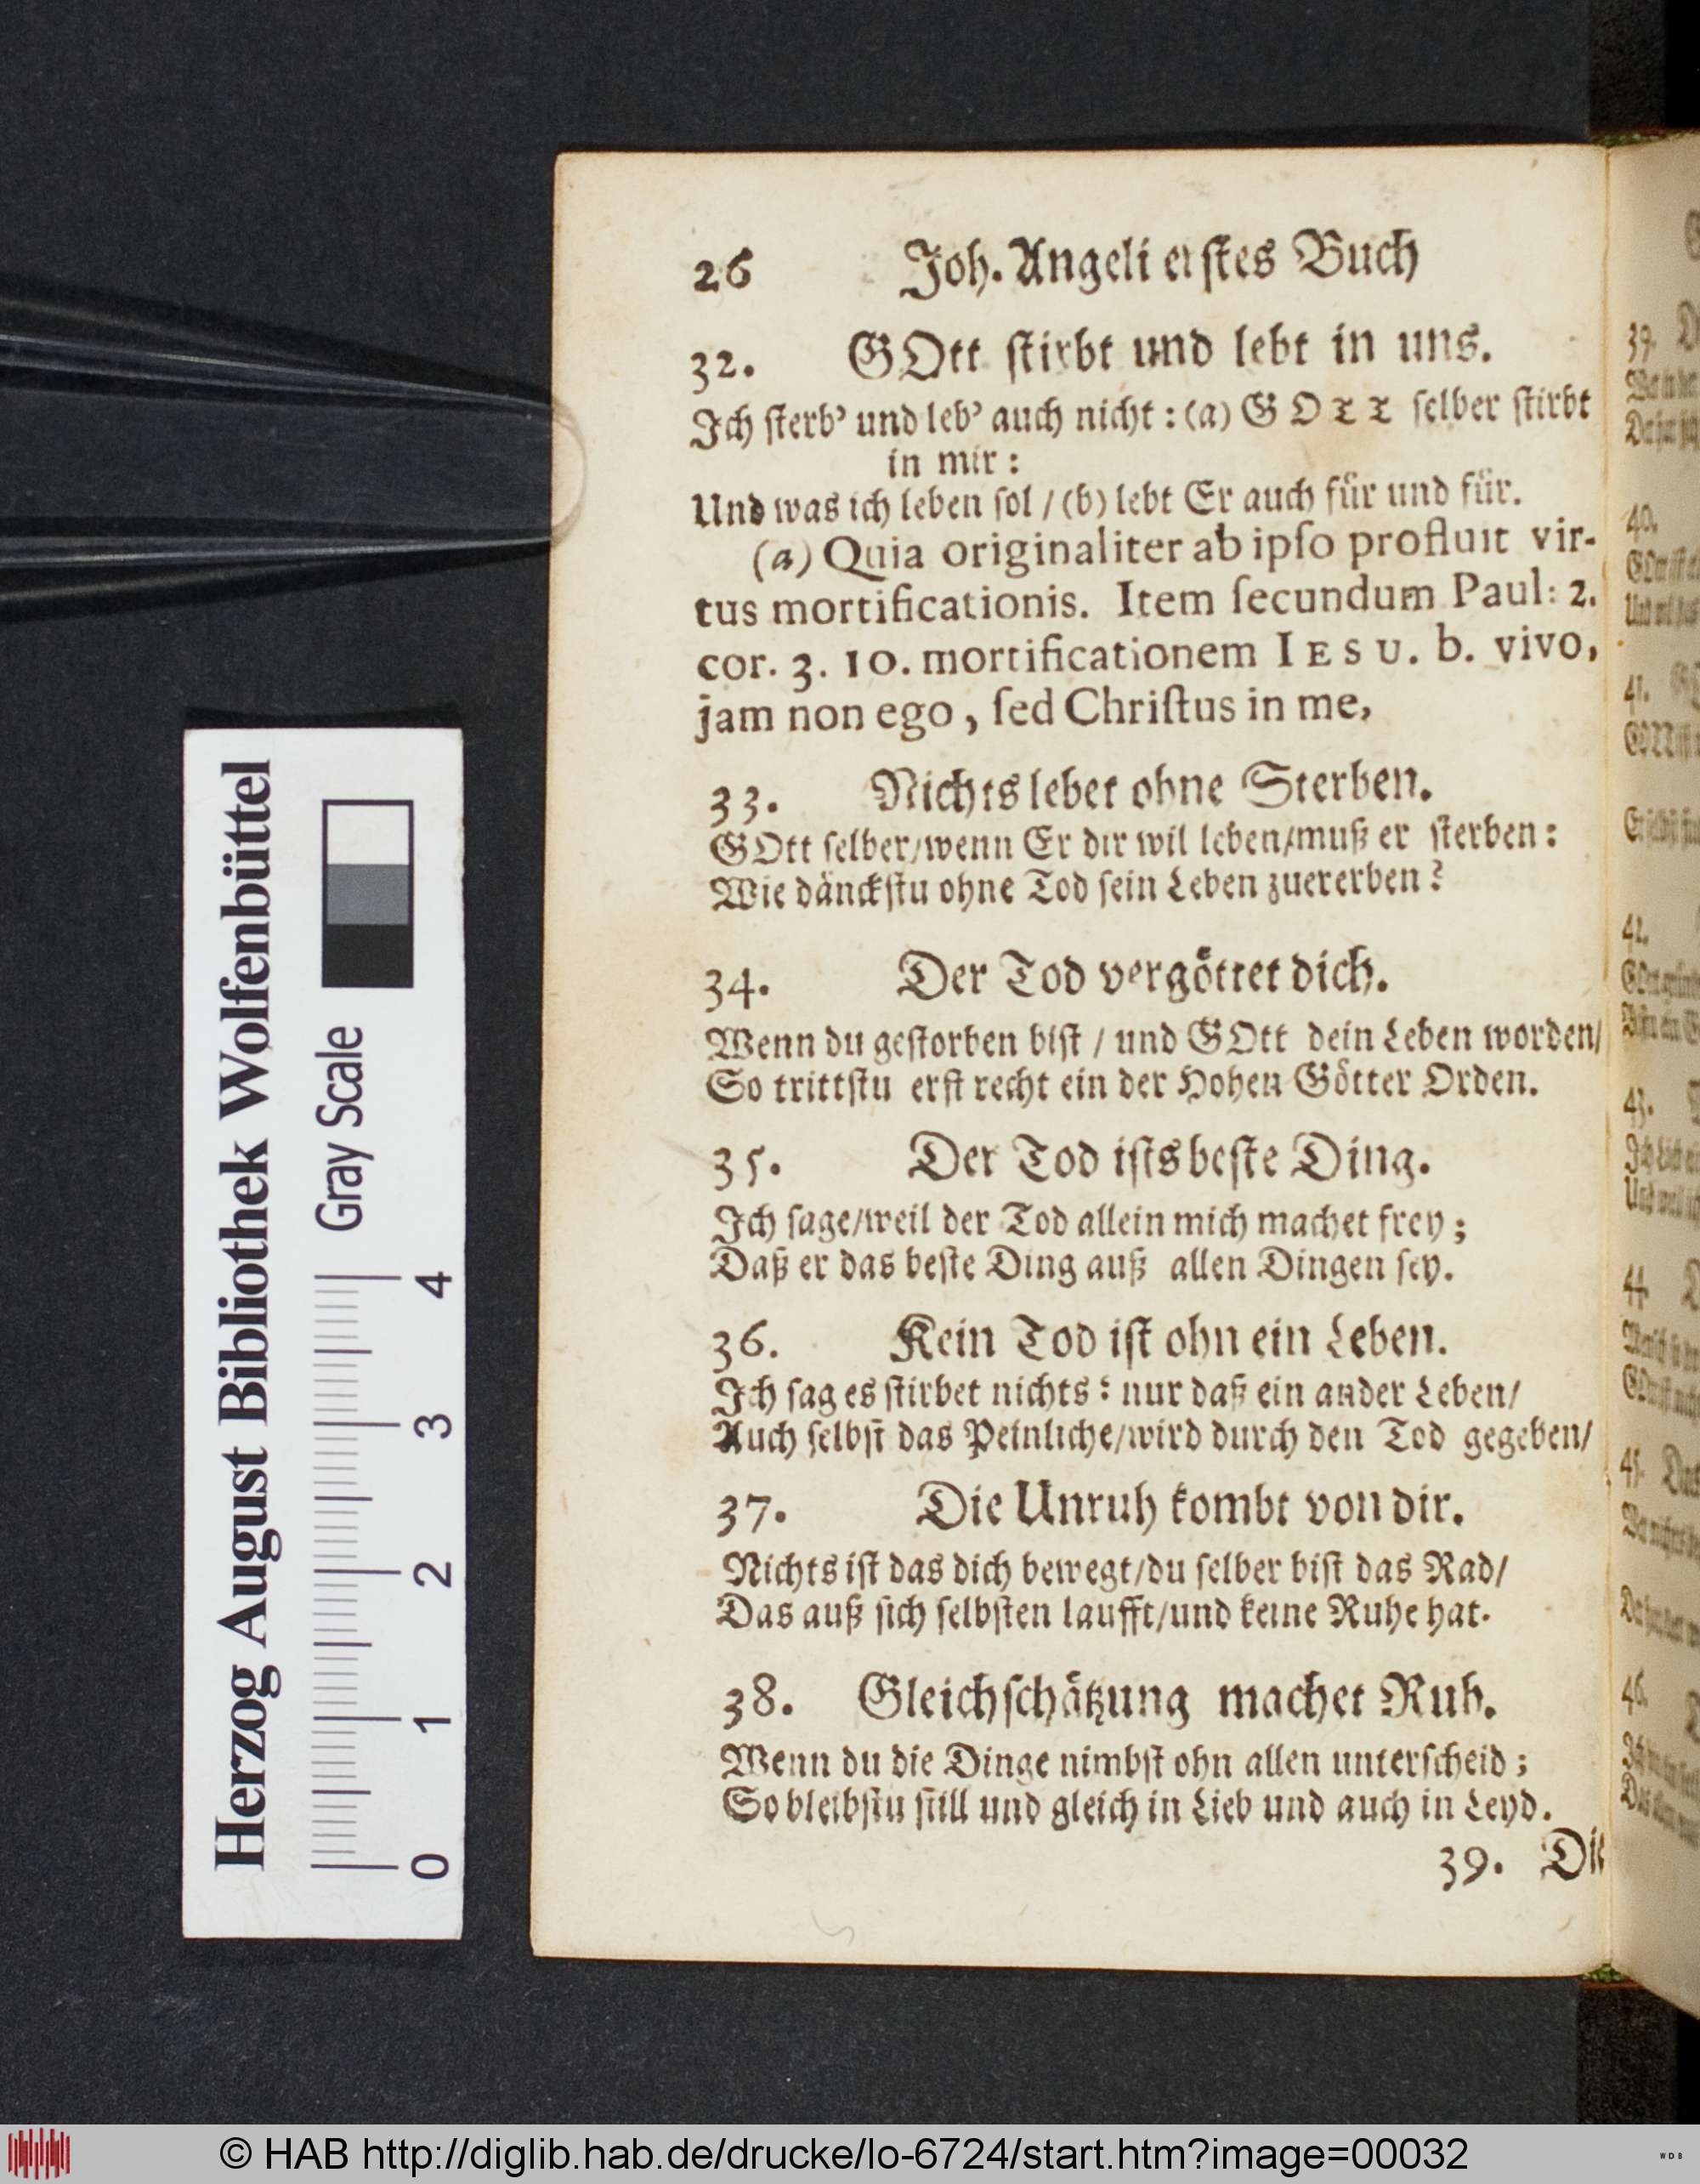 26 Joh. Angeli erstes Buch
32. GOtt stirbt und lebt in uns.
Jch sterb' und leb' auch nicht: (a) GOTT selber stirbt
in mir:
Und was ich leben sol / (b) lebt Er auch für und für.
(a) Quia originaliter ab ipso profluit vir-
tus mortificationis. Item secundum Paul: 2.
cor. 3. 10. mortificationem IESU. b. vivo,
jam non ego, sed Christus in me,
33. Nichts lebet ohne Sterben.
GOtt selber/wenn Er dir wil leben/muß er sterben:
Wie dänckstu ohne Tod sein Leben zuererben?
34. Der Tod vergöttet dich.
Wenn du gestorben bist / und GOtt dein Leben worden/
So trittstu erst recht ein der Hohen Götter Orden.
35. Der Tod ists beste Ding.
Jch sage/weil der Tod allein mich machet frey;
Daß er das beste Ding auß allen Dingen sey.
36. Kein Tod ist ohn ein Leben.
Jch sag es stirbet nichts: nur daß ein ander Leben/
Auch selbst das Peinliche/wird durch den Tod gegeben/
37. Die Unruh kombt von dir.
Nichts ist das dich bewegt/du selber bist das Rad/
Das auß sich selbsten laufft/und keine Ruhe hat.
38. Gleichschätzung machet Ruh.
Wenn du die Dinge nimbst ohn allen unterscheid;
So bleibstu still und gleich in Lieb und auch in Leyd.
39. Die
Herzog August Bibliothek Wolfenbüttel
Gray Scale
0 1 2 3 4
39.
40.
41.
42.
43.
44.
45.
46.
© HAB http://diglib.hab.de/drucke/lo-6724/start.htm?image=00032
WDB